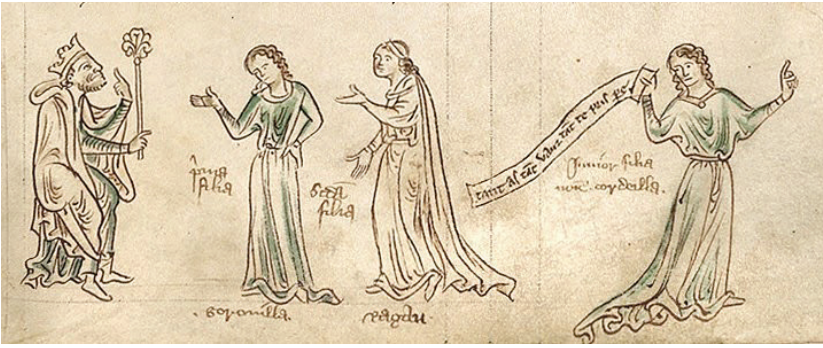 p̄ma
filia
sc̄da
filia
tant as tāt vauz tāt te pris pe
Junior filia
noīe. cordeilla.
.Goronilla.
Ragau.